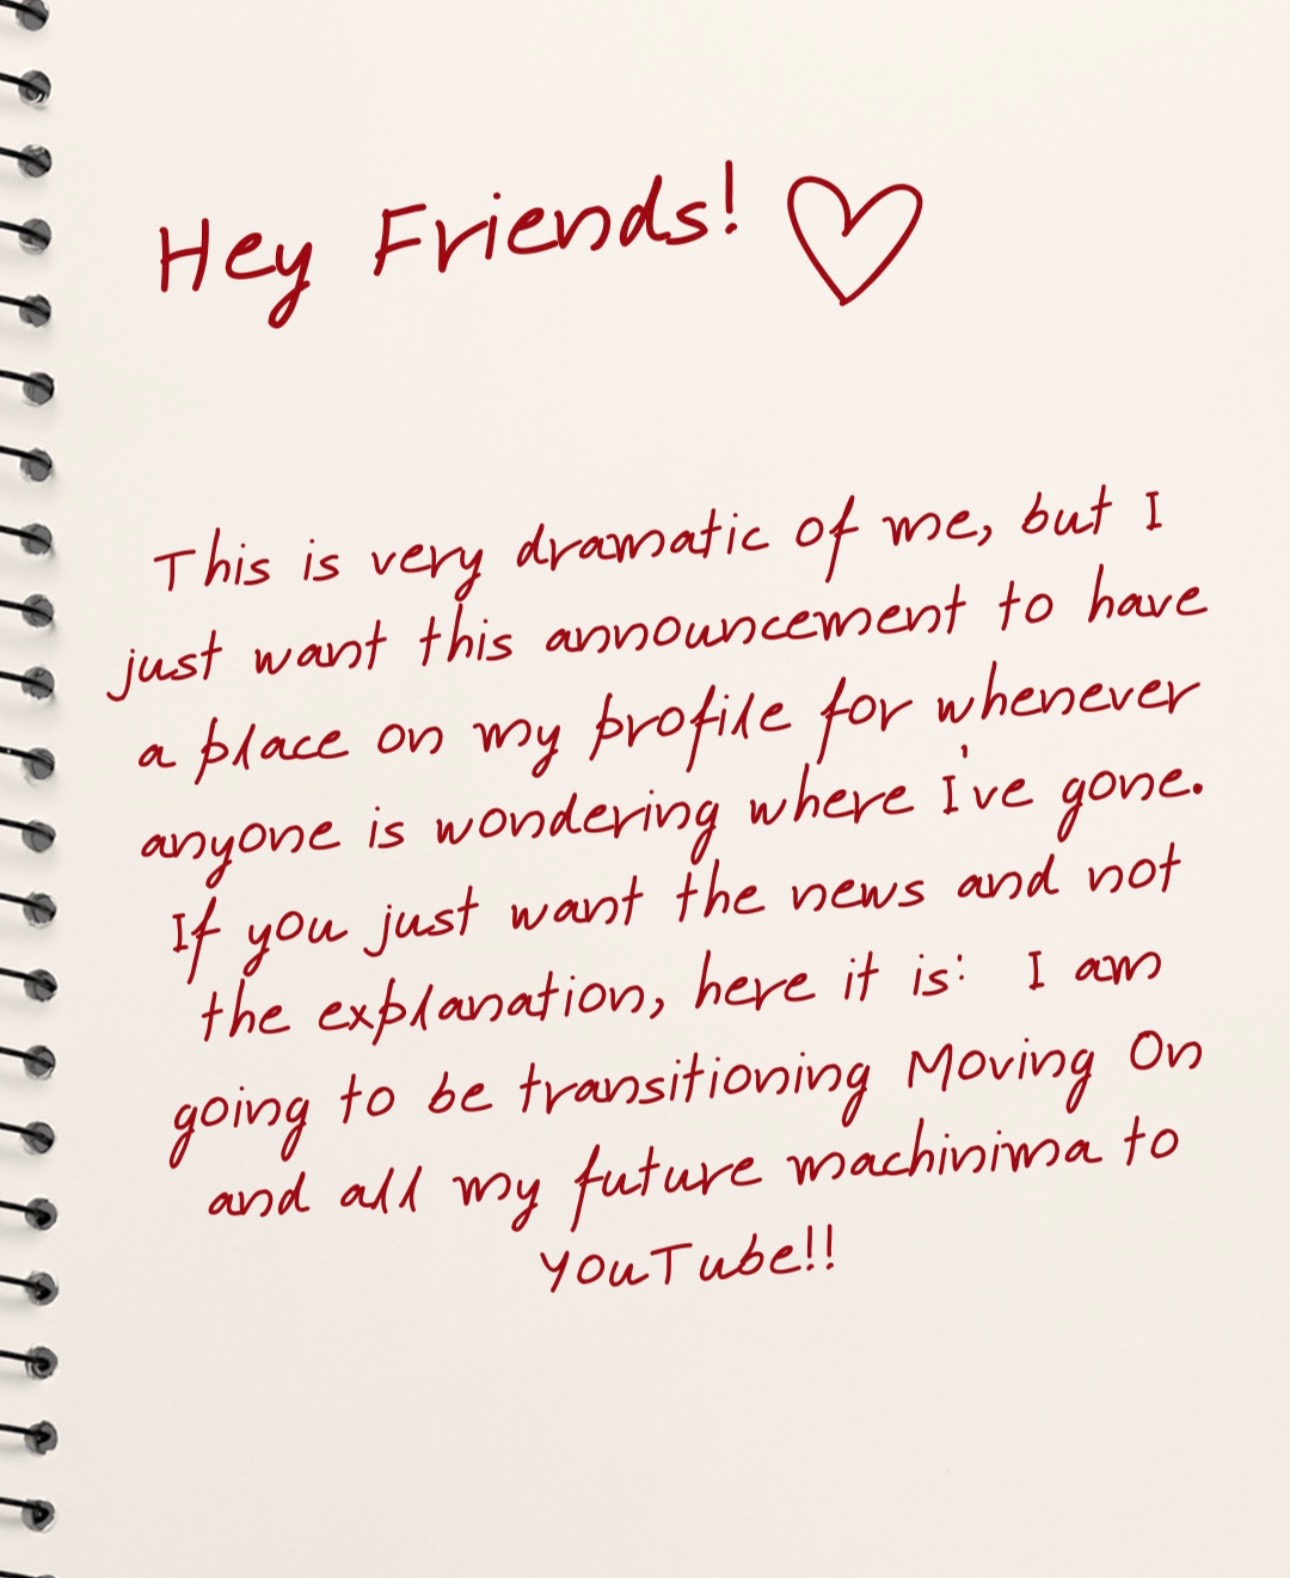 Hey Friends! ♡
This is very dramatic of me, but I
just want this announcement to have
a place on my profile for whenever
anyone is wondering where I've gone.
If you just want the news and not
the explanation, here it is: I am
going to be transitioning Moving On
and all my future machinima to
YouTube!!